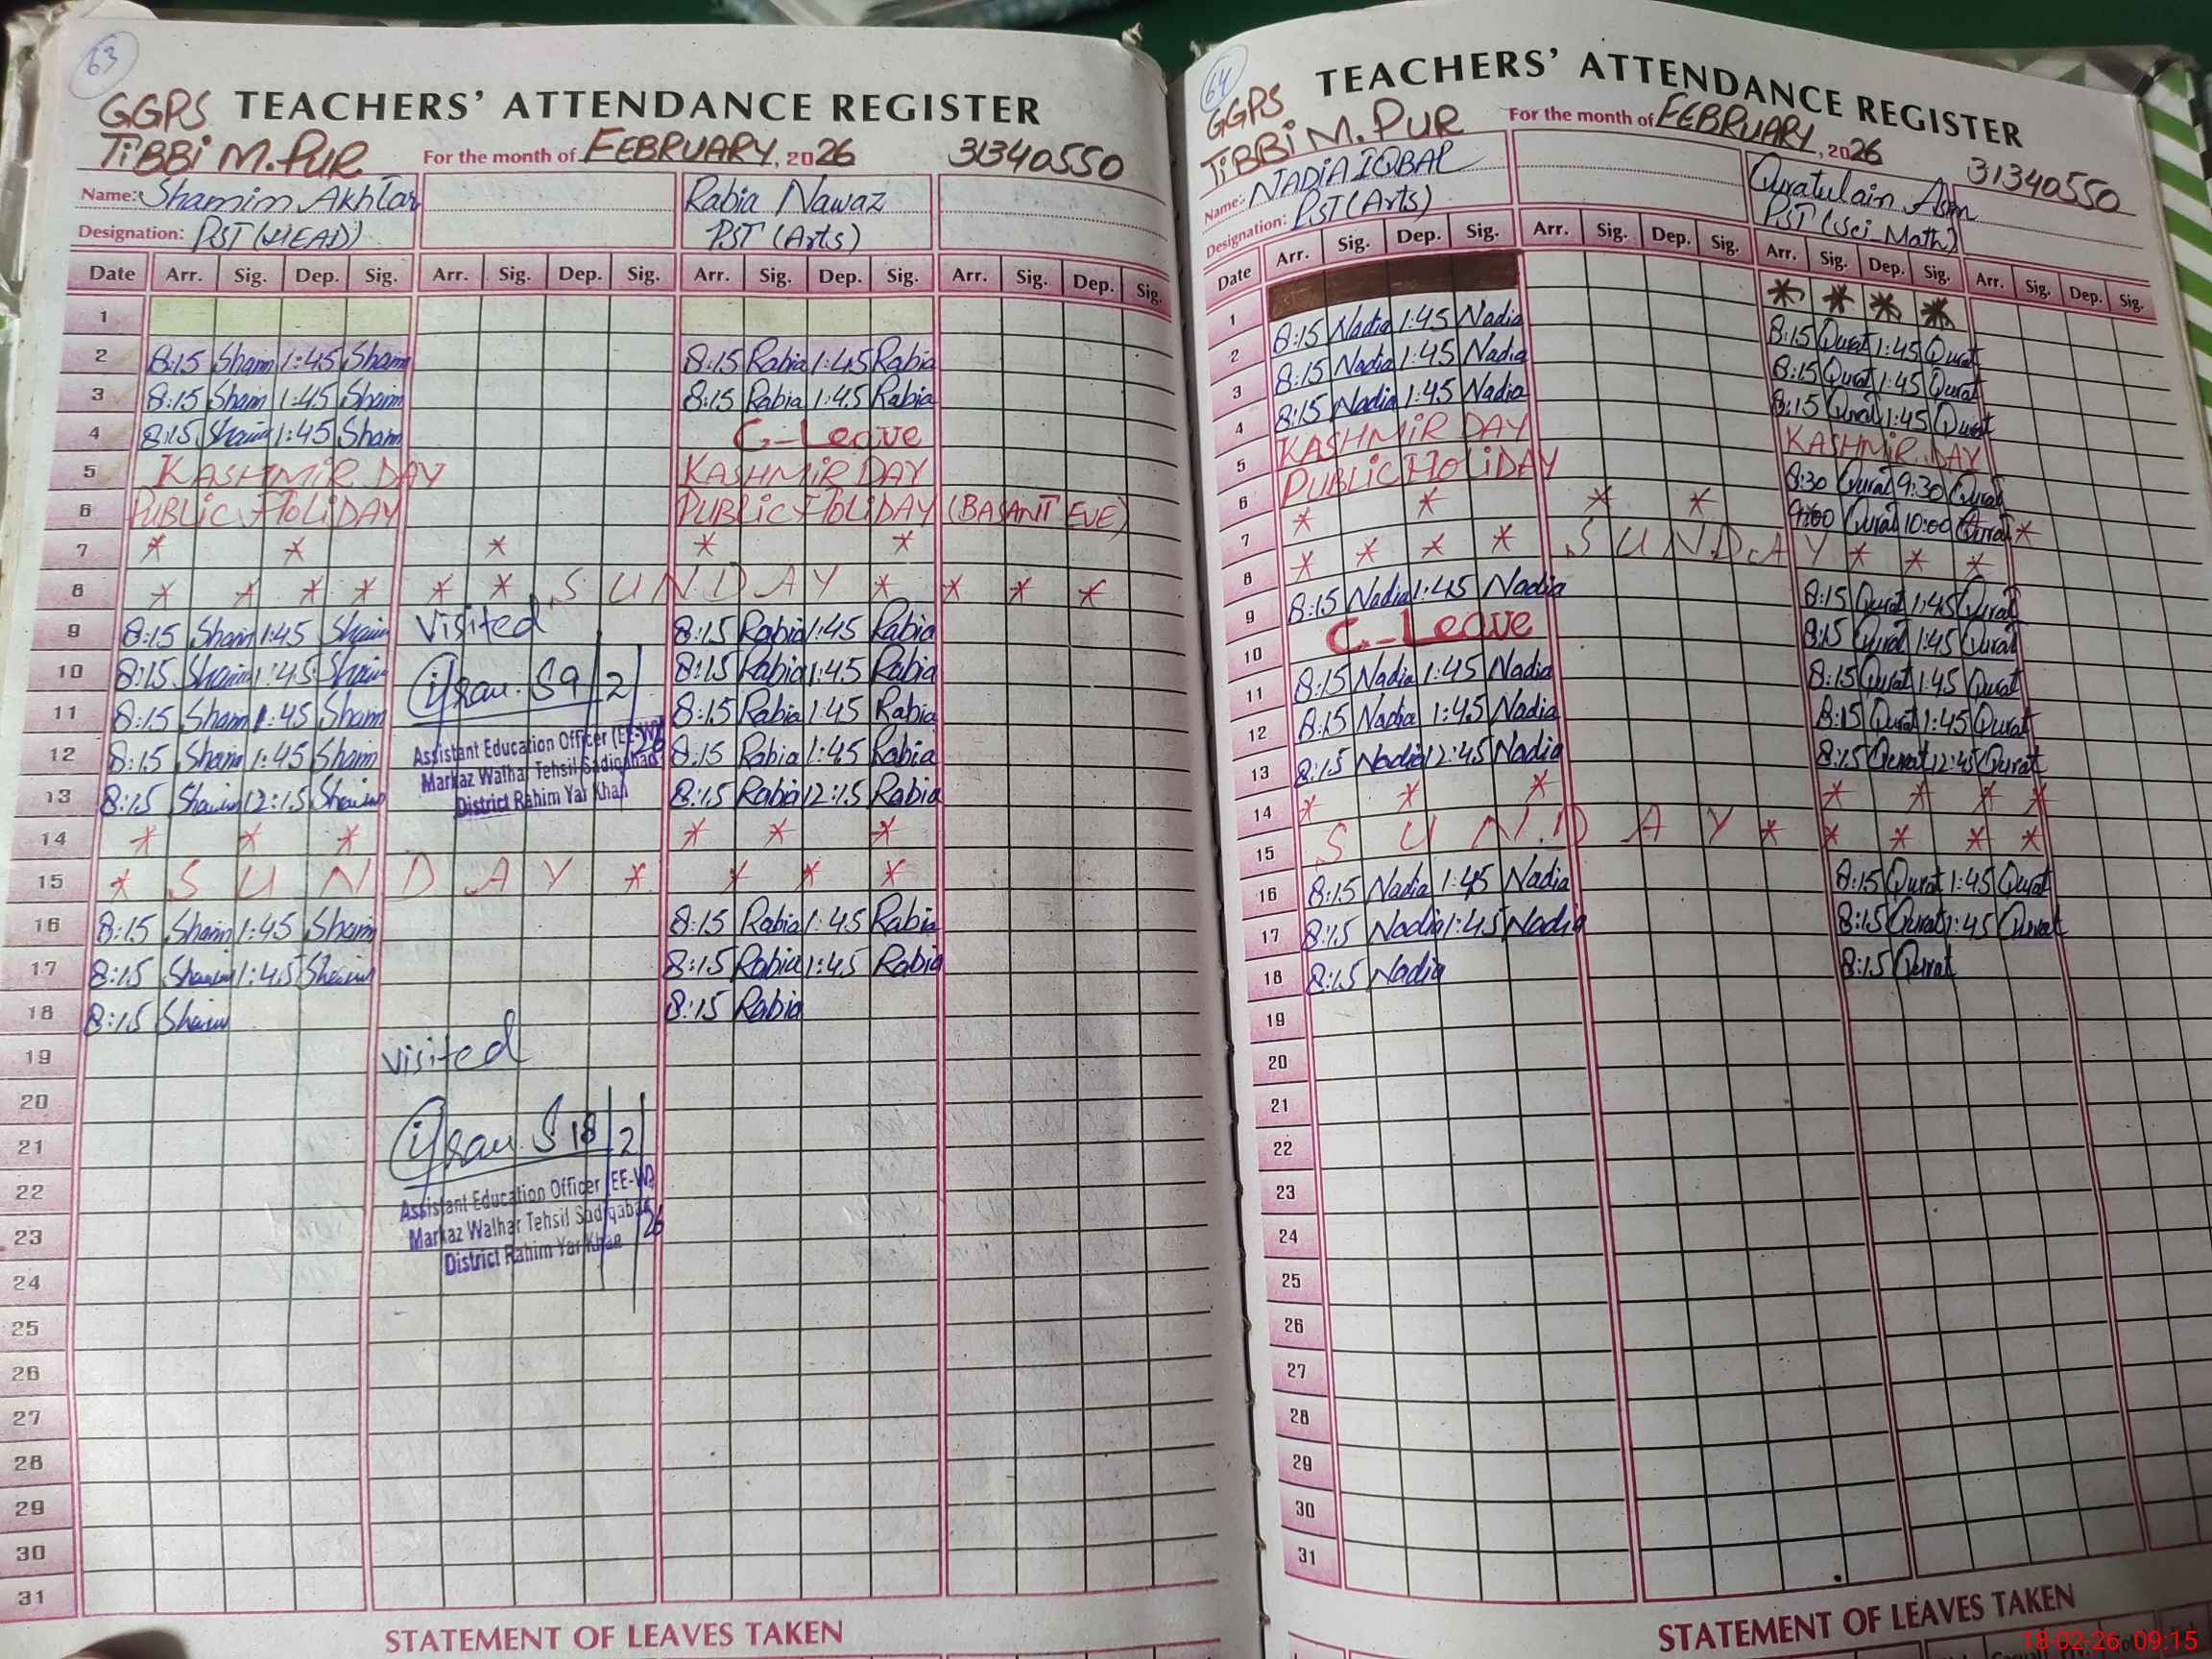 63
GGPS TEACHERS' ATTENDANCE REGISTER
TiBBi M. PUR For the month of FEBRUARY, 2026 31340550
Name: Shamim Akhtar Rabia Nawaz
Designation: PST (HEAD) PST (Arts)
Date Arr. Sig. Dep. Sig. Arr. Sig. Dep. Sig. Arr. Sig. Dep. Sig. Arr. Sig. Dep. Sig.
1
2 8:15 Sham 1:45 Sham 8:15 Rabia 1:45 Rabia
3 8:15 Sham 1:45 Sham 8:15 Rabia 1:45 Rabia
4 8:15 Sham 1:45 Sham C-Leave
5 KASHMiR DAY KASHMiR DAY
6 PUBLiC HOLiDAY PUBLiC HOLiDAY (BASANT EVE)
7 * * * * *
8 * * * * * * SUNDAY * * * *
9 8:15 Sham 1:45 Sham Visited 8:15 Rabia 1:45 Rabia
10 8:15 Sham 1:45 Sham 9/2/26 8:15 Rabia 1:45 Rabia
11 8:15 Sham 1:45 Sham 8:15 Rabia 1:45 Rabia
12 8:15 Sham 1:45 Sham Assistant Education Officer (EE-W) 8:15 Rabia 1:45 Rabia
Markaz Walhar Tehsil Sadiqabad
13 8:15 Sham 12:15 Sham District Rahim Yar Khan 8:15 Rabia 12:15 Rabia
14 * * * * * *
15 * SUNDAY * * * *
16 8:15 Sham 1:45 Sham 8:15 Rabia 1:45 Rabia
17 8:15 Sham 1:45 Sham 8:15 Rabia 1:45 Rabia
18 8:15 Sham 8:15 Rabia
19 visited
20
21 18/2/26
22 Assistant Education Officer (EE-W)
23 Markaz Walhar Tehsil Sadiqabad
District Rahim Yar Khan
24
25
26
27
28
29
30
31
STATEMENT OF LEAVES TAKEN
64
GGPS TEACHERS' ATTENDANCE REGISTER
TiBBi M. PUR For the month of FEBRUARY, 2026 31340550
Name: NADiA IQBAL Quratulain
Designation: PST (Arts) PST (Sci-Math)
Date Arr. Sig. Dep. Sig. Arr. Sig. Dep. Sig. Arr. Sig. Dep. Sig. Arr. Sig. Dep. Sig.
1 * * * *
2 8:15 Nadia 1:45 Nadia 8:15 Qurat 1:45 Qurat
3 8:15 Nadia 1:45 Nadia 8:15 Qurat 1:45 Qurat
4 8:15 Nadia 1:45 Nadia 8:15 Qurat 1:45 Qurat
5 KASHMiR DAY KASHMiR DAY
6 PUBLiC HOLiDAY 8:30 Qurat 9:30 Qurat
7 * * * * 9:00 Qurat 10:00 Qurat *
8 * * * * SUNDAY * * *
9 8:15 Nadia 1:45 Nadia 8:15 Qurat 1:45 Qurat
10 C-Leave 8:15 Qurat 1:45 Qurat
11 8:15 Nadia 1:45 Nadia 8:15 Qurat 1:45 Qurat
12 8:15 Nadia 1:45 Nadia 8:15 Qurat 1:45 Qurat
13 8:15 Nadia 12:45 Nadia 8:15 Qurat 12:45 Qurat
14 * * * * * * *
15 SUNDAY * * * * *
16 8:15 Nadia 1:45 Nadia 8:15 Qurat 1:45 Qurat
17 8:15 Nadia 1:45 Nadia 8:15 Qurat 1:45 Qurat
18 8:15 Nadia 8:15 Qurat
19
20
21
22
23
24
25
26
27
28
29
30
31
STATEMENT OF LEAVES TAKEN
18-02-26 09:15